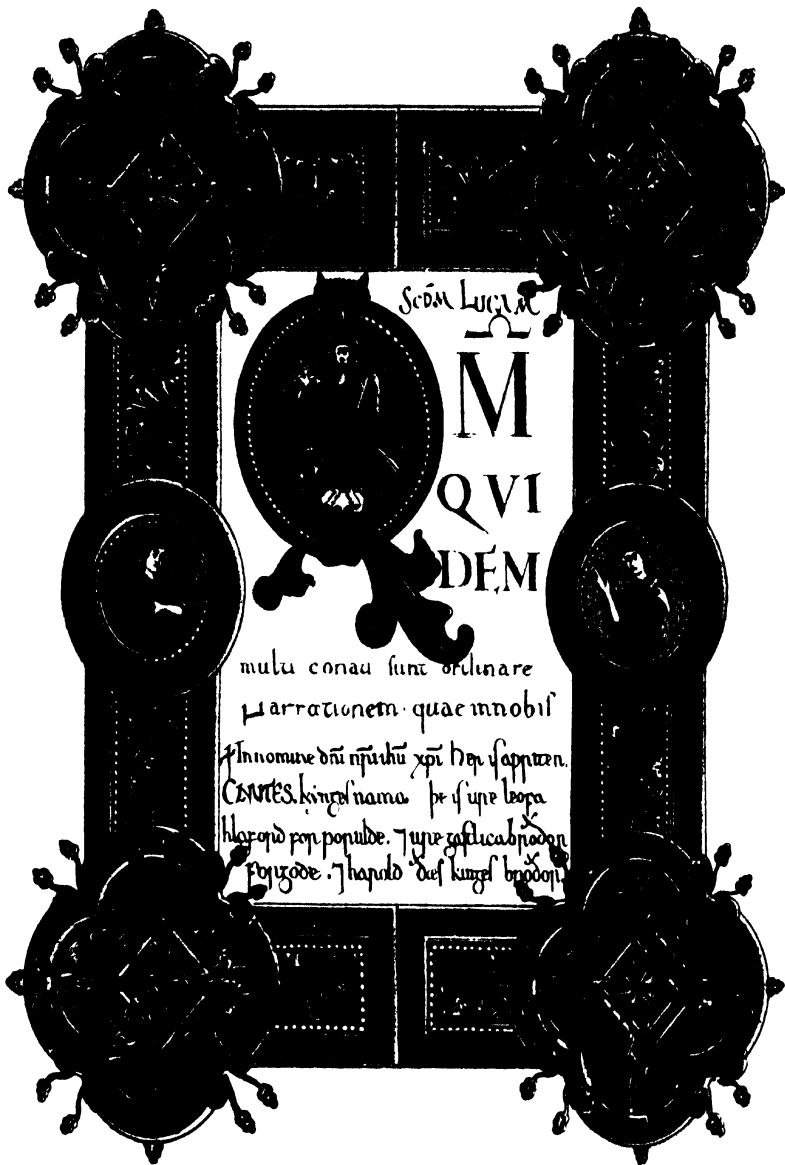 SCD̄M LUCAM
Q M̄
QVI
DEM
multi conati sunt ordinare
narrationem · quae in nobis
+ In nomine dñi nr̄i ihū xp̄i. Her is awriten
CANUTES. kynges nama. þe is ure leofa
hlaford for worulde. ⁊ ure gastlica broðor
for gode. ⁊ harold ðæs kinges broðor.